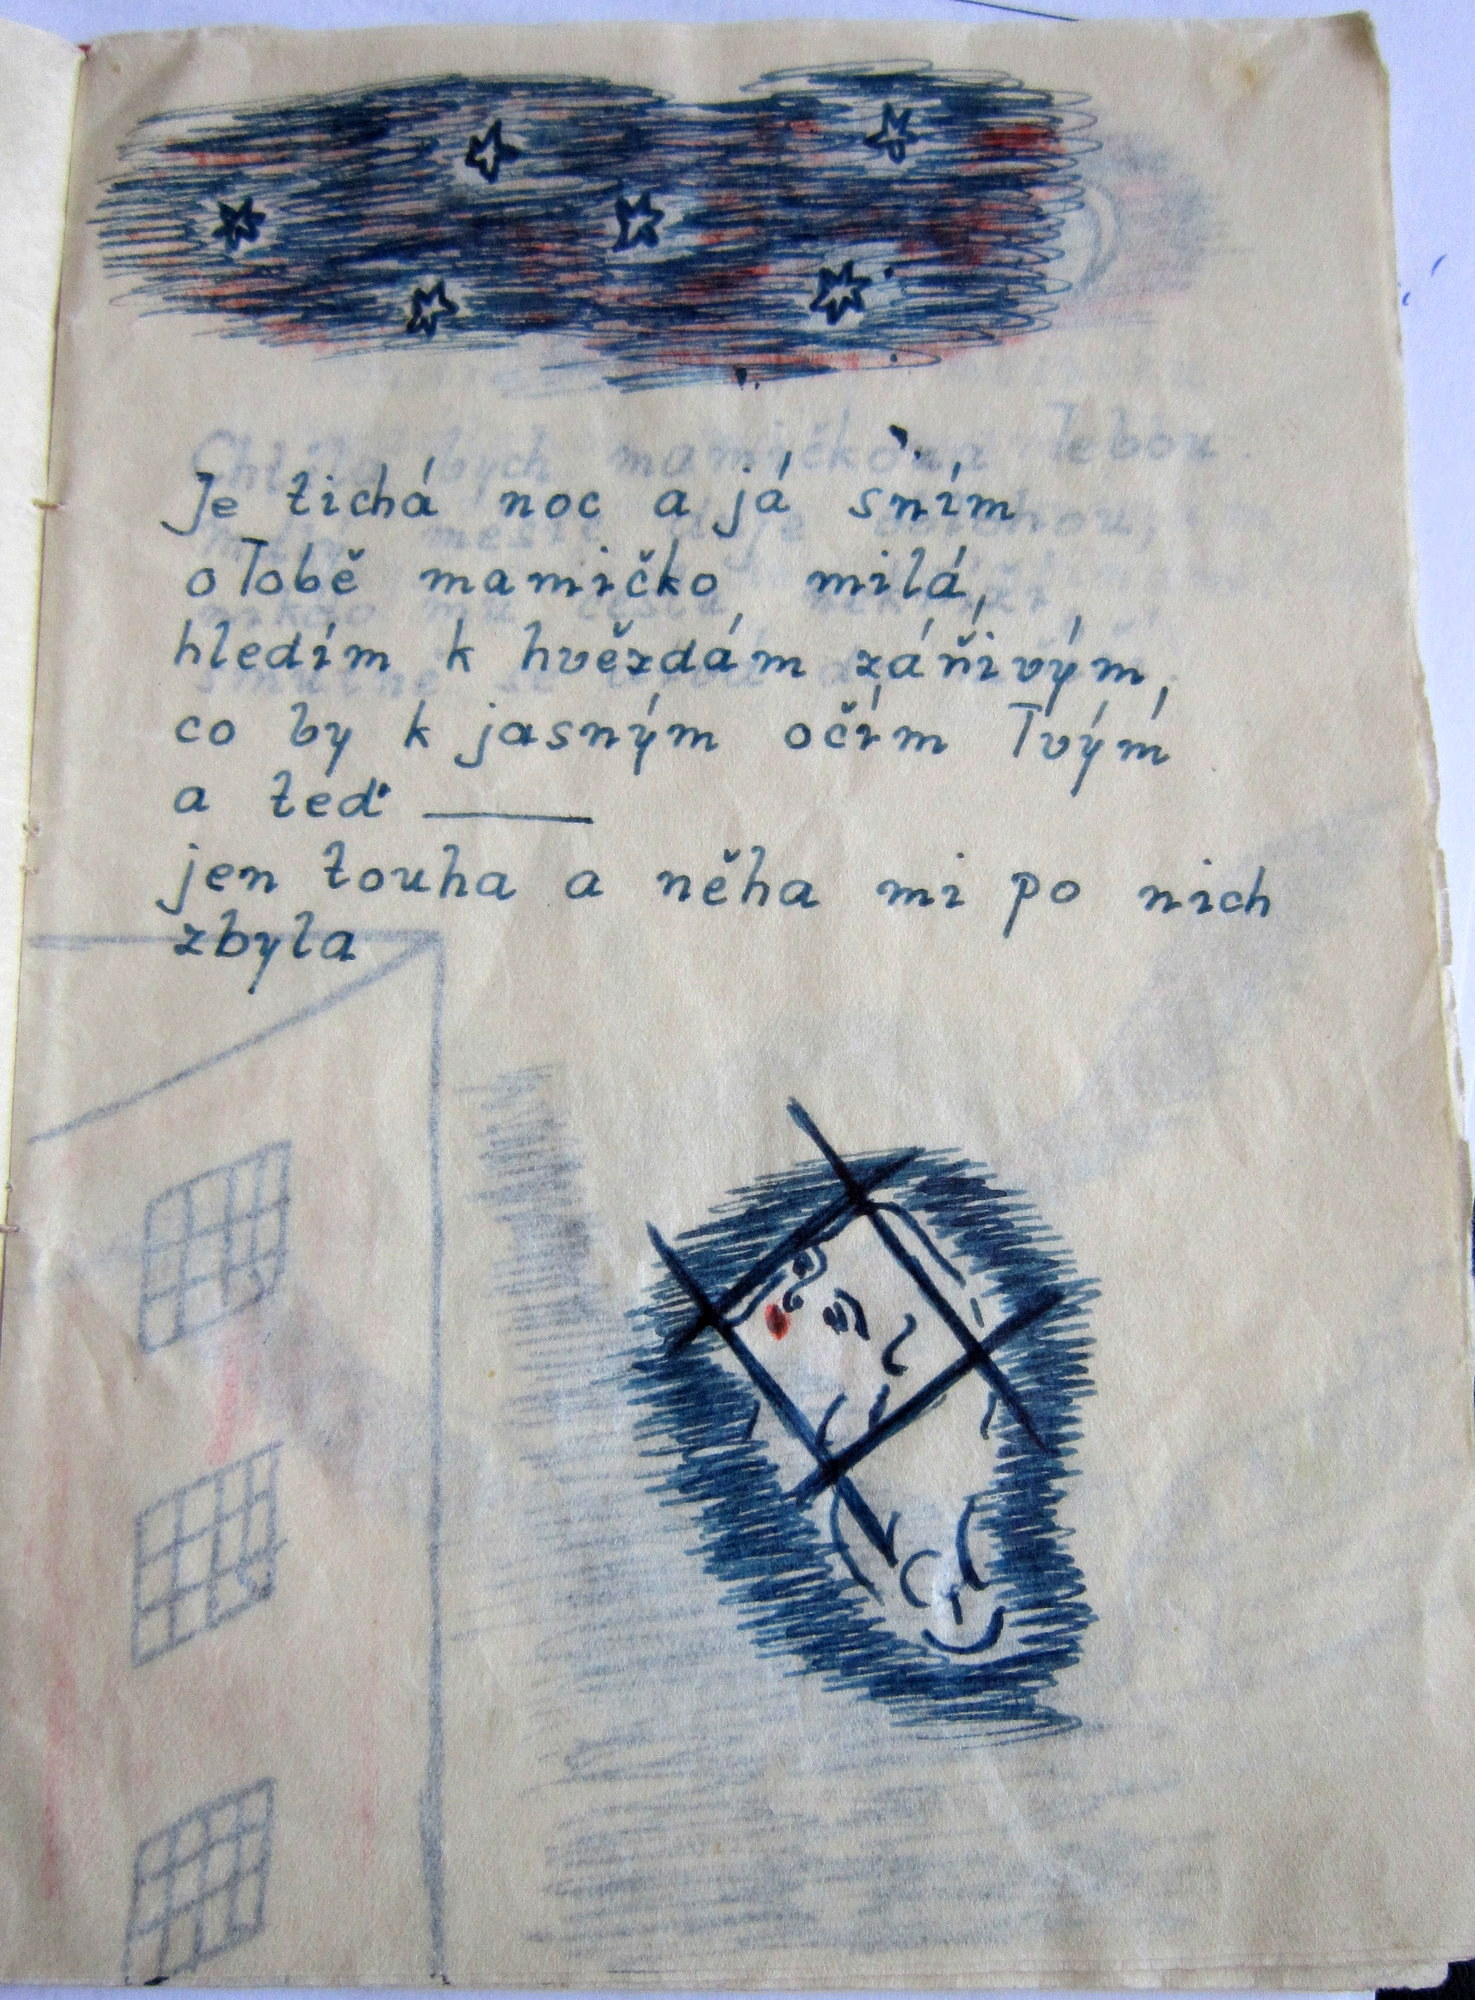 Je tichá noc a já sním
o Tobě mamičko milá,
hledím k hvězdám zářivým,
co by k jasným očím Tvým
a teď ———
jen touha a něha mi po nich
zbyla